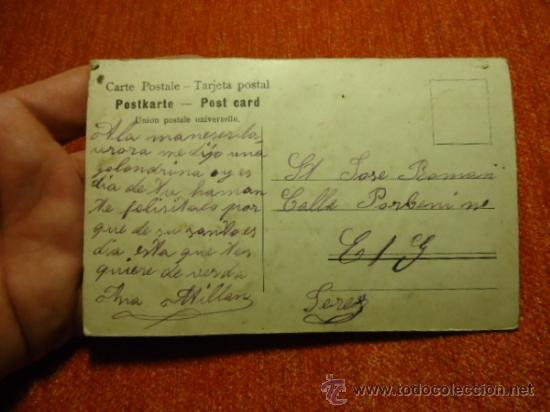 Carte Postale – Tarjeta postal
Postkarte — Post card
Union postale universelle.
A la maneser la
urora me dijo una
golondrina oy es
dia de tu haman
te felisitalo por
que de su santo es
dia esta que te
quiere de verda
Ana Millan
St Jose Roman
Calle Porbenir nº
C/G
Jerez
todocoleccion
www.todocoleccion.net